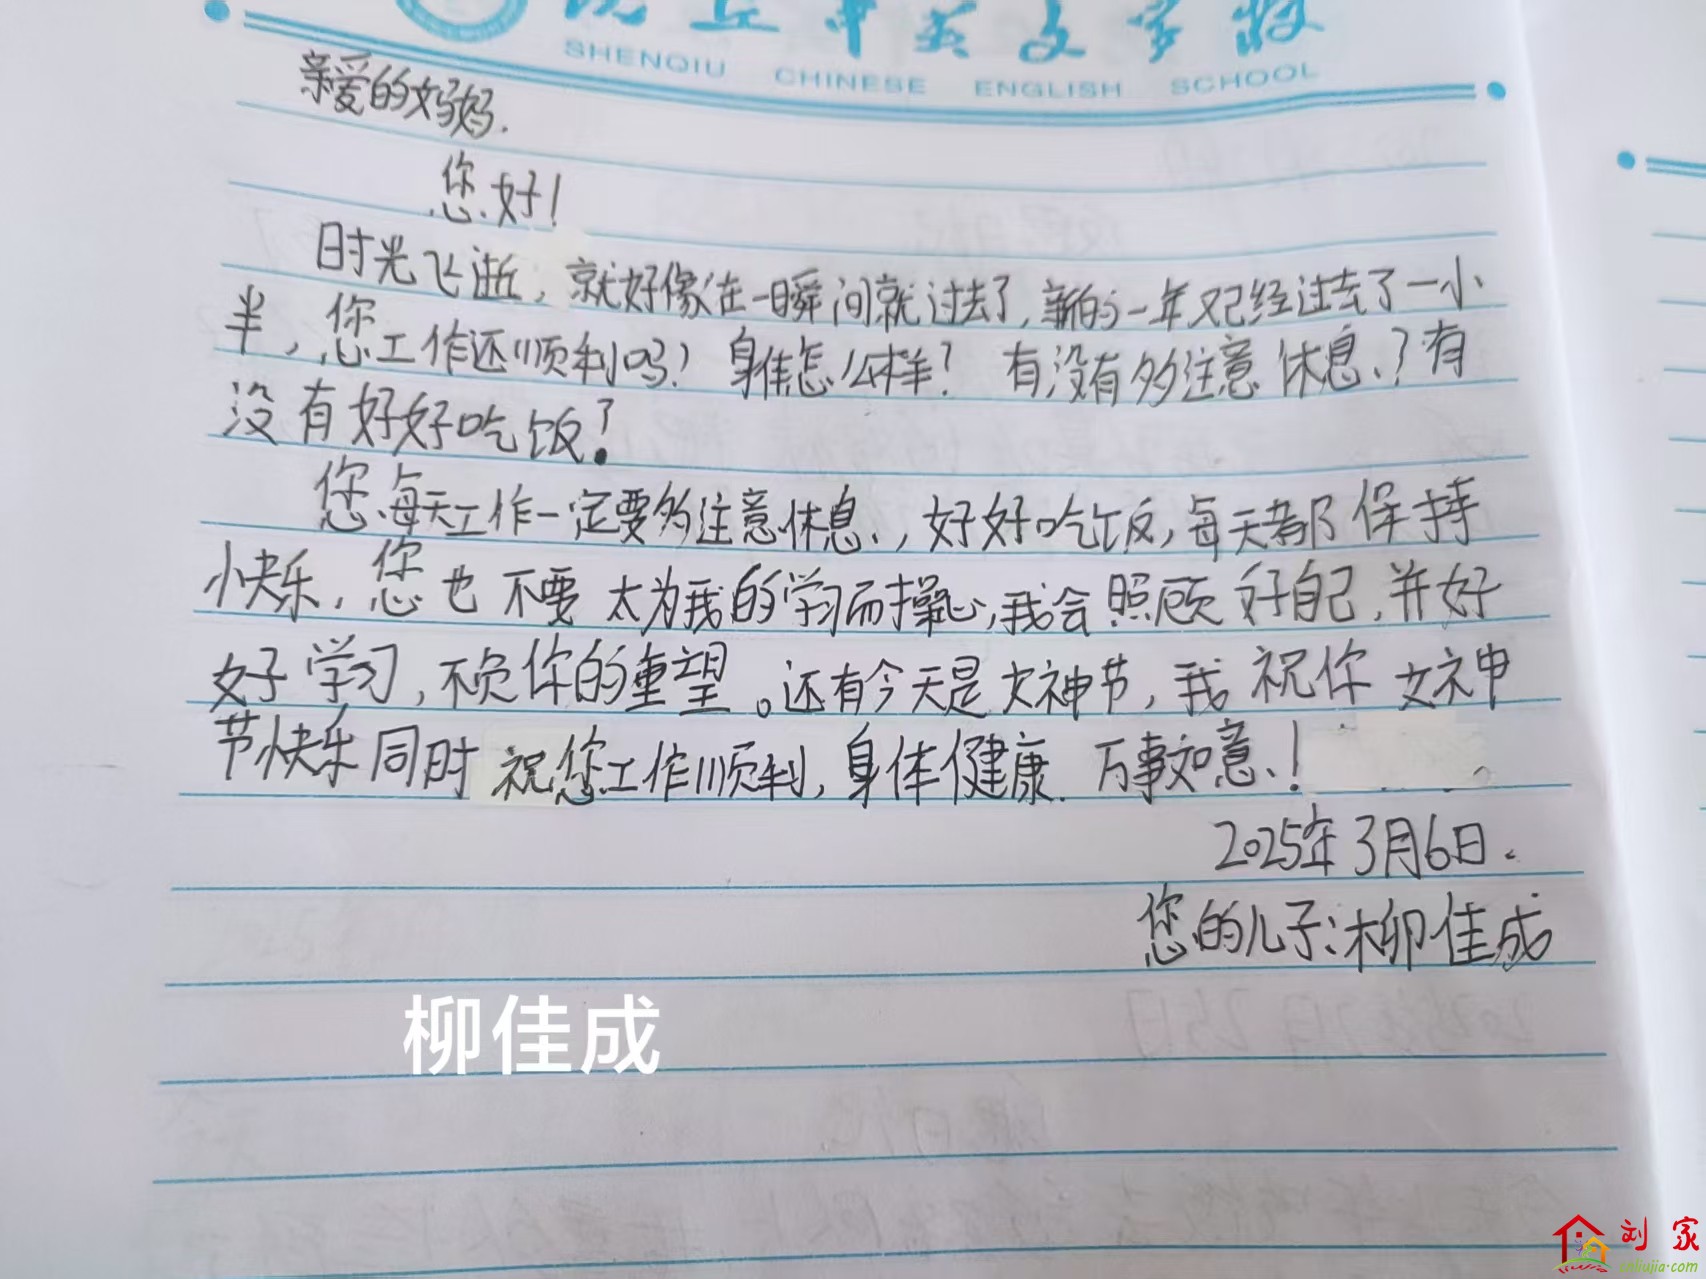 沈丘中英文学校
SHENQIU CHINESE ENGLISH SCHOOL
亲爱的妈妈.
您好!
时光飞逝,就好像在一瞬间就过去了,新的一年又已经过去了一小
半,您工作还顺利吗?身体怎么样?有没有多注意休息?有
没有好好吃饭?
您每天工作一定要多注意休息,好好吃饭,每天都保持
快乐,您也不要太为我的学习而操心,我会照顾好自己,并好
好学习,不负你的重望。还有今天是女神节,我祝你女神
节快乐同时祝您工作顺利,身体健康.万事如意!
2025年3月6日.
您的儿子:柳佳成
柳佳成
刘家